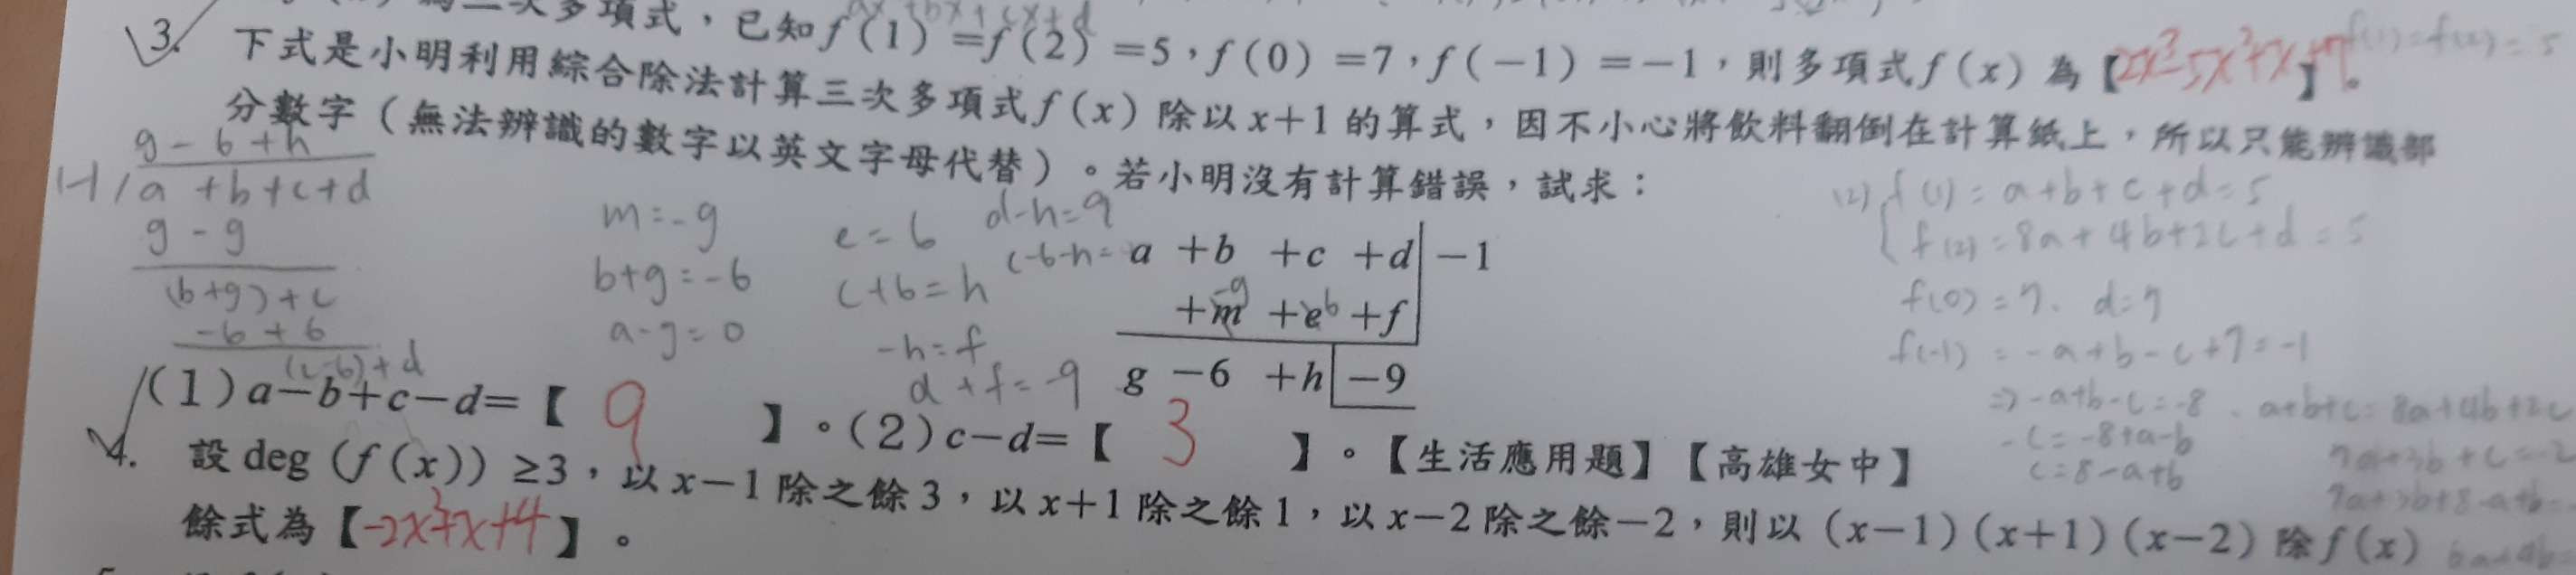 為二次多項式，已知f(1)=f(2)=5，f(0)=7，f(-1)=-1，則多項式f(x)為【2x³-5x²+x+7】。
ax +bx+cx+d
f(1)=f(2)=5
3. 下式是小明利用綜合除法計算三次多項式f(x)除以x+1的算式，因不小心將飲料翻倒在計算紙上，所以只能辨識部
分數字（無法辨識的數字以英文字母代替）。若小明沒有計算錯誤，試求：
g-6+h
1+1/a+b+c+d
g-g
(b+g)+c
-6+6
(c-6)+d
m=-g
b+g=-6
a-g=0
e=6
c+6=h
-h=f
d+f=-9
d-h=9
c-6-h=
a +b +c +d -1
-g 6
+m +e +f
g -6 +h -9
(2) f(1)=a+b+c+d=5
f(2)=8a+4b+2c+d=5
f(0)=7、d=7
f(-1)=-a+b-c+7=-1
⇒-a+b-c=-8、a+b+c=8a+4b+2c
-c=-8+a-b
c=8-a+b
7a+3b+c=-2
7a+3b+8-a+b=
6a+4b
(1)a-b+c-d=【9】。(2)c-d=【3】。【生活應用題】【高雄女中】
4. 設deg(f(x))≥3，以x-1除之餘3，以x+1除之餘1，以x-2除之餘-2，則以(x-1)(x+1)(x-2)除f(x)
餘式為【-2x²+x+4】。